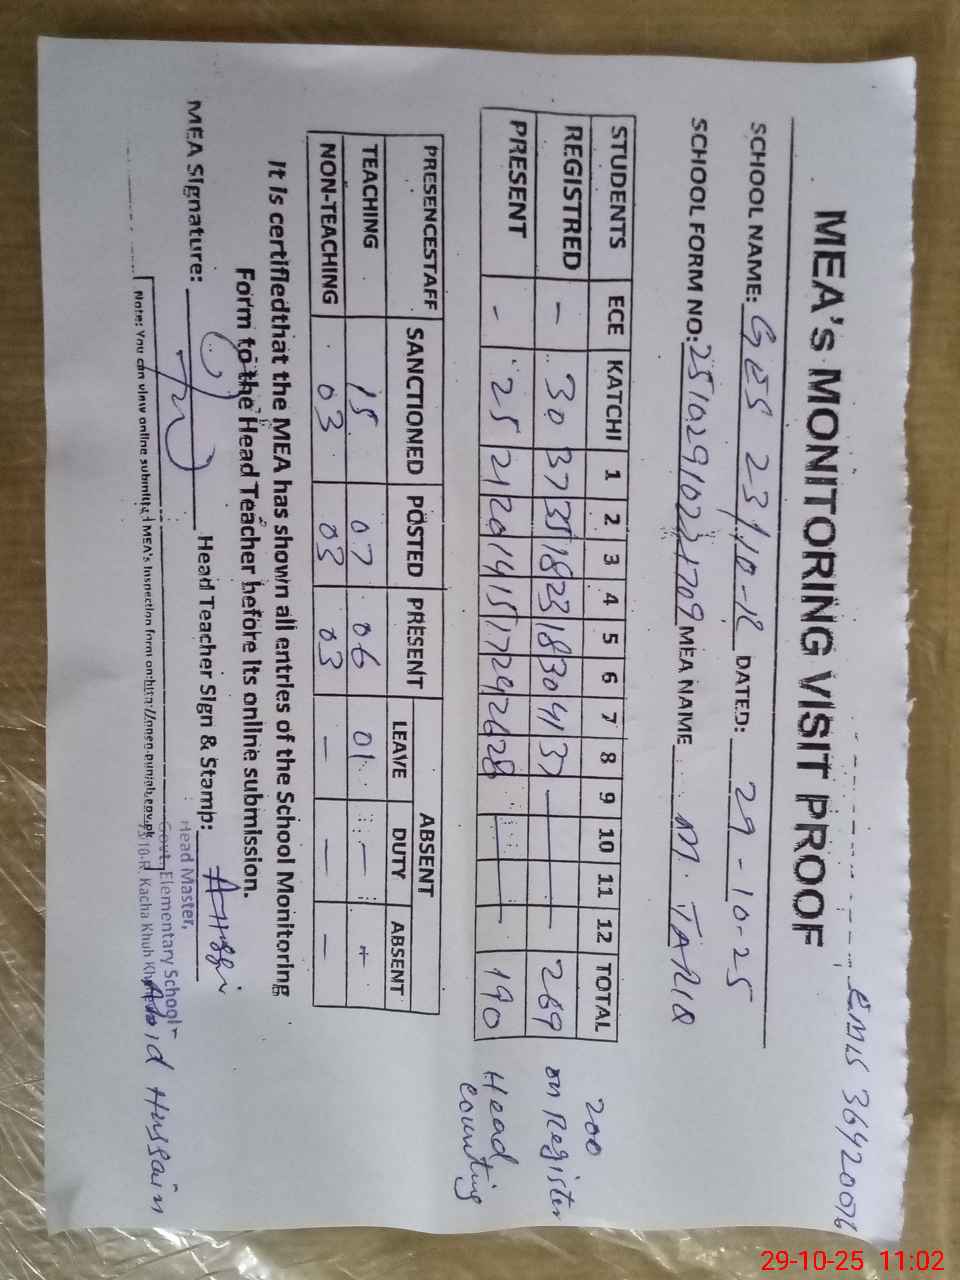 EMIS 36420076
MEA's MONITORING VISIT PROOF
SCHOOL NAME: GES 23/10-R DATED: 29-10-25
SCHOOL FORM NO: MEA NAME M. TARIQ
STUDENTS ECE KATCHI 1 2 3 4 5 6 7 8 9 10 11 12 TOTAL
REGISTRED - 30 37 35 18 23 18 30 41 37 — 269
PRESENT - 25 21 20 14 15 17 24 26 28 — 190
200
on Register
Head
counting
PRESENCESTAFF SANCTIONED POSTED PRESENT ABSENT
LEAVE DUTY ABSENT
TEACHING 15 07 06 01 - -
NON-TEACHING 03 03 03 - - -
It is certifiedthat the MEA has shown all entries of the School Monitoring
Form to the Head Teacher before its online submission.
MEA Signature: Head Teacher Sign & Stamp:
Head Master,
Govt. Elementary School
Kacha Khuh
Abid Hussain
Note: You can view online submitted MEA's Inspection form on:
29-10-25 11:02